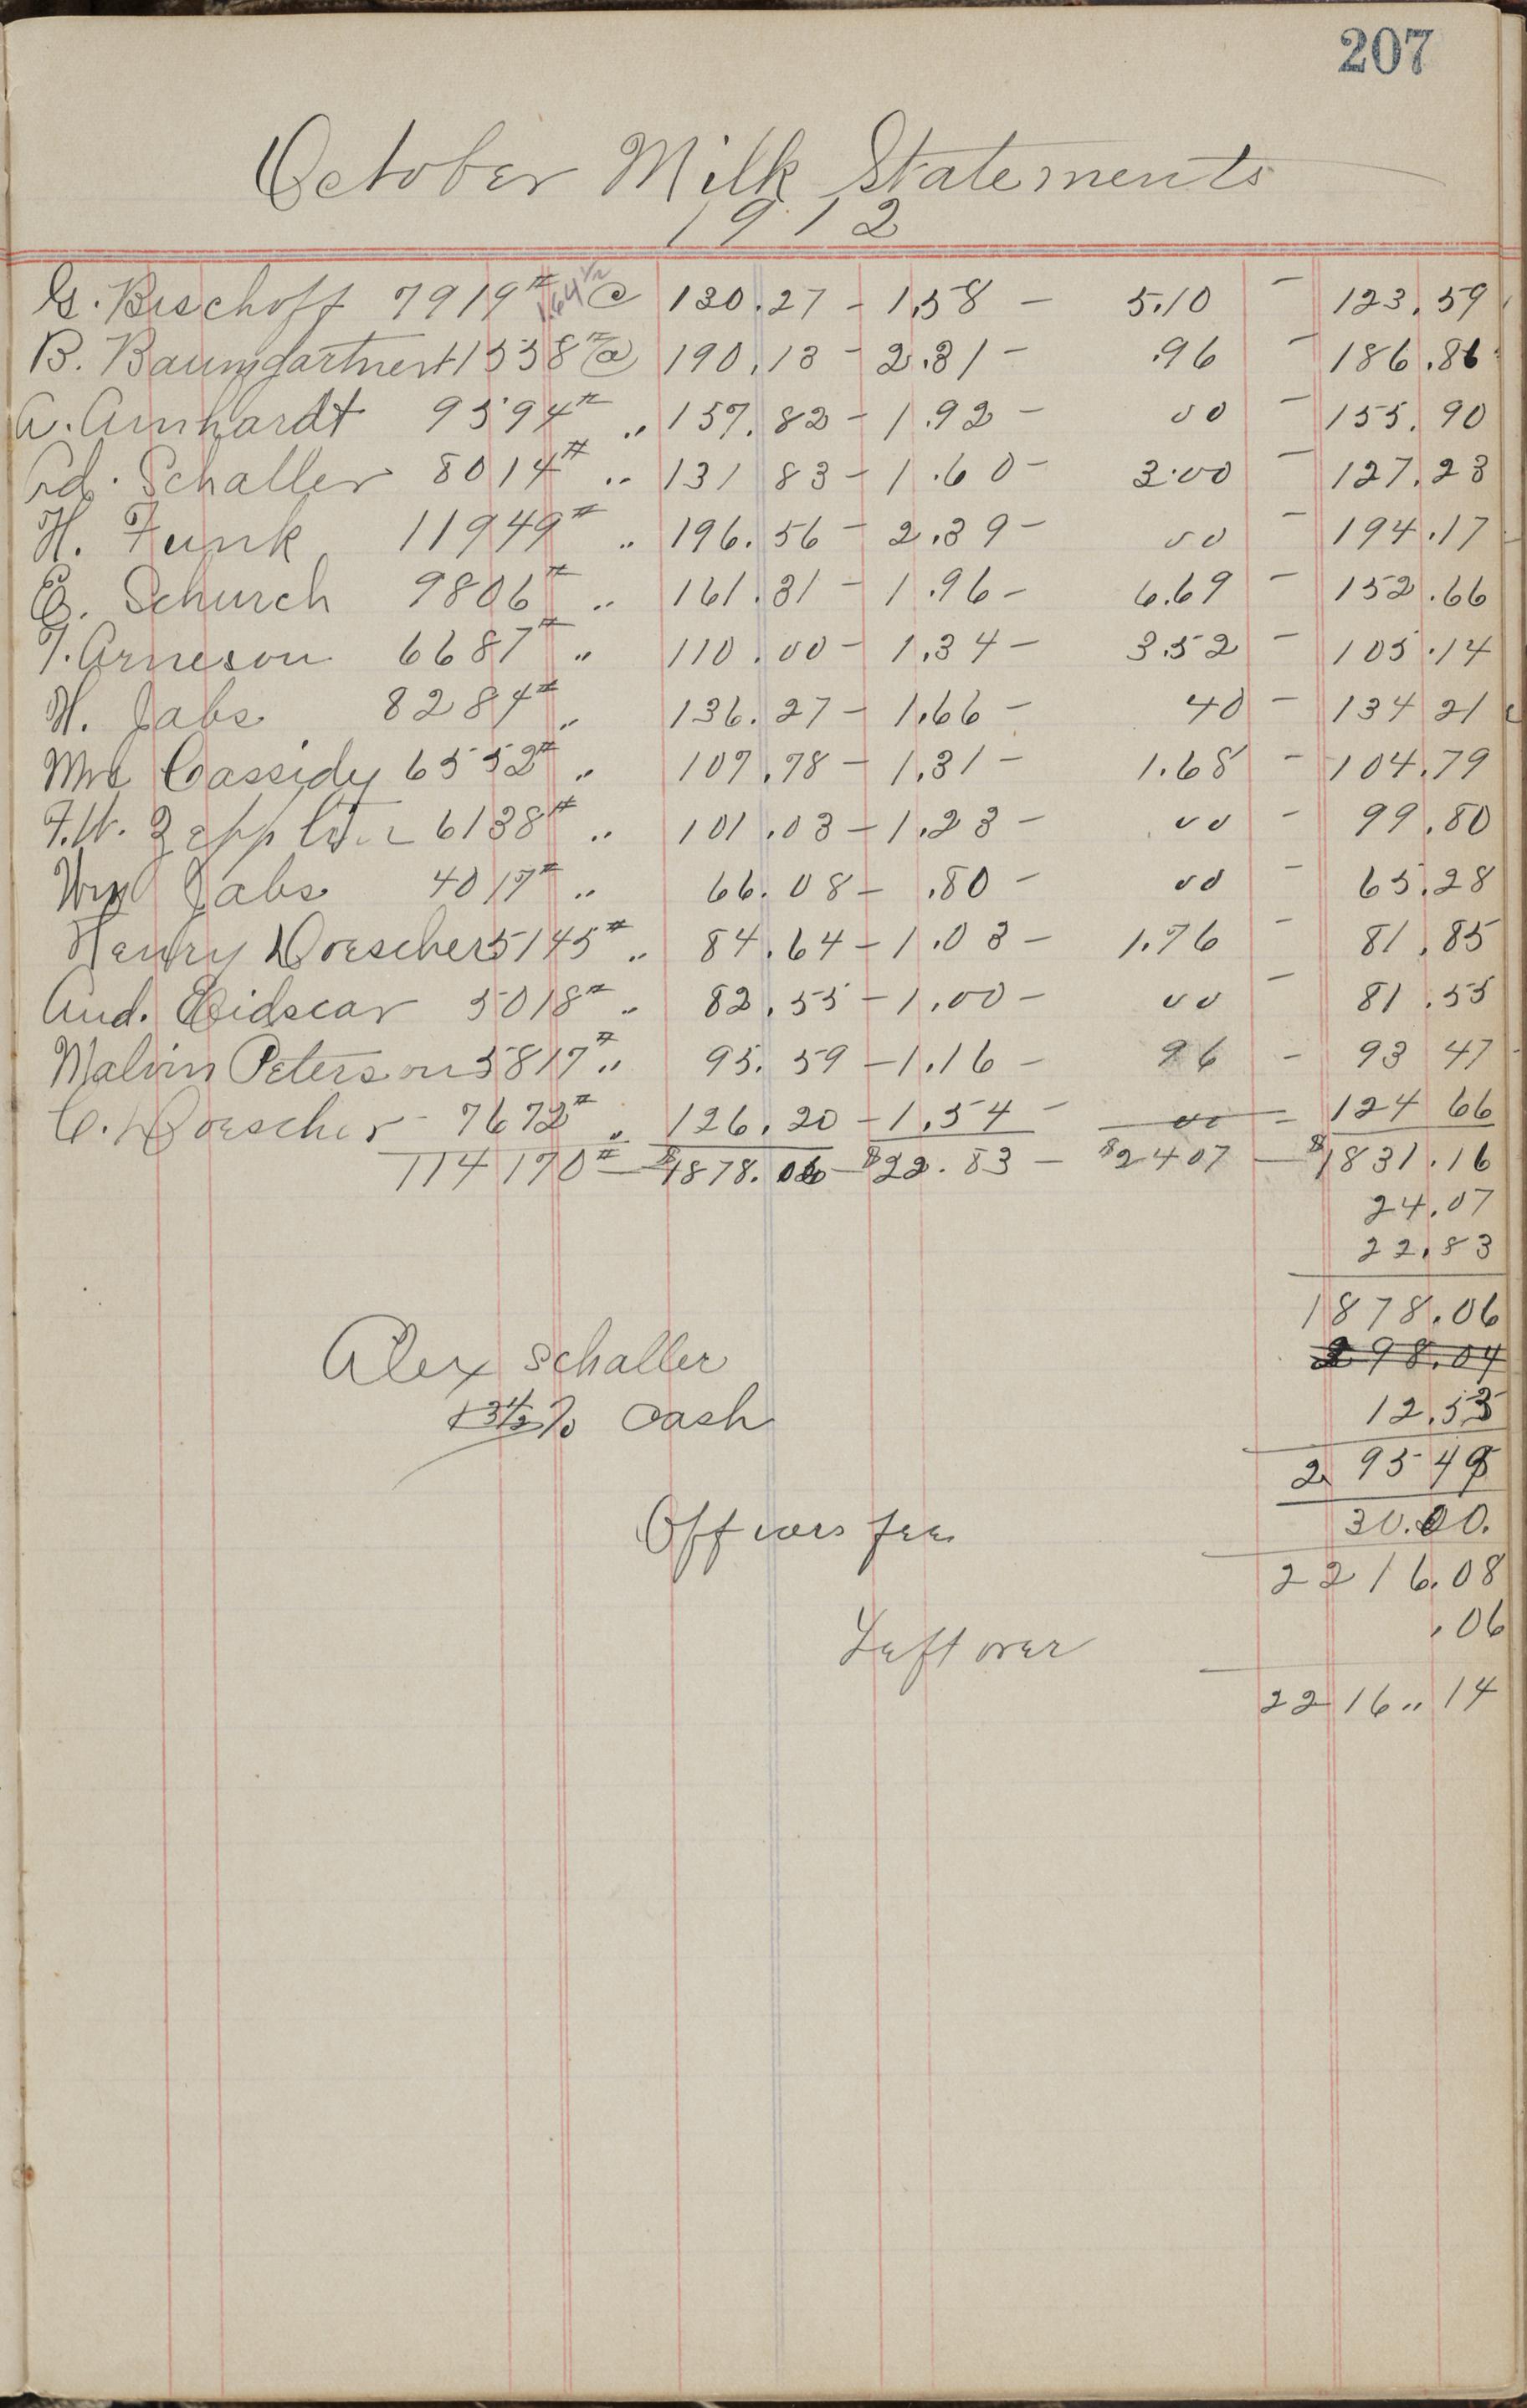 207
October Milk Statements
1912
G. Bischoff 7919# 1.64½ @ 130.27 - 1.58 - 5.10 - 123.59
B. Baumgartner 11558# @ 190.13 - 2.31 - .96 - 186.86
A. Arnhardt 9594# " 157.82 - 1.92 - 00 - 155.90
Ad. Schaller 8014# " 131 83 - 1.60 - 3.00 - 127.23
H. Funk 11949# " 196.56 - 2.39 - 00 - 194.17
E. Schurch 9806# " 161.31 - 1.96 - 6.69 - 152.66
T. Arneson 6687# " 110.00 - 1.34 - 3.52 - 105.14
H. Jabs 8284# " 136.27 - 1.66 - 40 - 134 21
Mrs Cassidy 6552# " 107.78 - 1.31 - 1.68 - 104.79
F.W. 6138# " 101.03 - 1.23 - 00 - 99.80
Wm Jabs 4017# " 66.08 - .80 - 00 - 65.28
Henry Doescher 5145# " 84.64 - 1.03 - 1.76 - 81.85
And. Eidscar 5018# " 82.55 - 1.00 - 00 - 81.55
Malvin Peterson 5817# " 95.59 - 1.16 - 96 - 93 47
C. Doescher - 7672# " 126.20 - 1.54 - 00 - 124 66
114170# - $1878.06 - $22.83 - $2407 - $1831.16
24.07
22.83
1878.06
298.04
Alex Schaller
12.55
13½% Cash
2 95 49
Officers fee 30.00.
2216.08
.06
Left over
2216.. 14